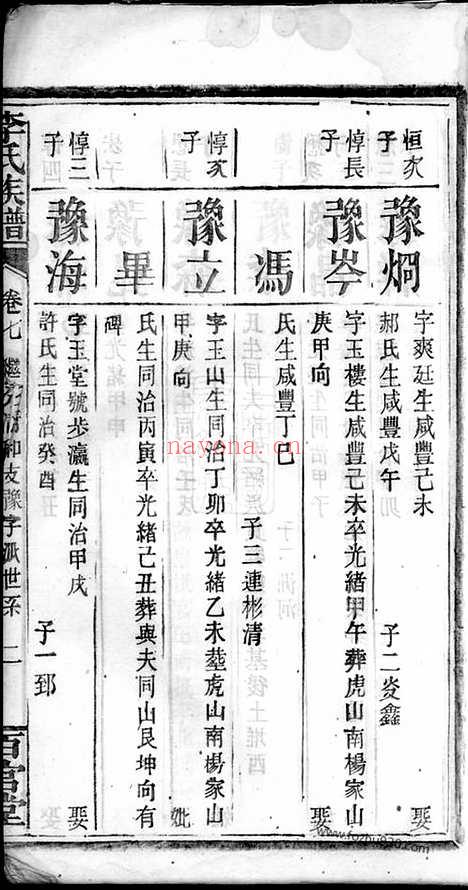 恒次子
豫炯
字爽廷生咸豐己未
娶
郝氏生咸豐戊午
子二炎鑫
惇長子
豫岑
字玉樓生咸豐己未卒光緒甲午葬虎山南楊家山
庚甲向
娶
馮
氏生咸豐丁巳
子三連彬清
惇次子
豫立
字玉山生同治丁卯卒光緒乙未塟虎山南楊家山
甲庚向
妣
畢
氏生同治丙寅卒光緒己丑葬與夫同山艮坤向有
碑
惇三子
豫海
字玉堂號步瀛生同治甲戌
娶
許氏生同治癸酉
子一郅
李氏族譜
卷七
豫字派世系
二
百宫堂
nayona.cn
www.fozhu920.com